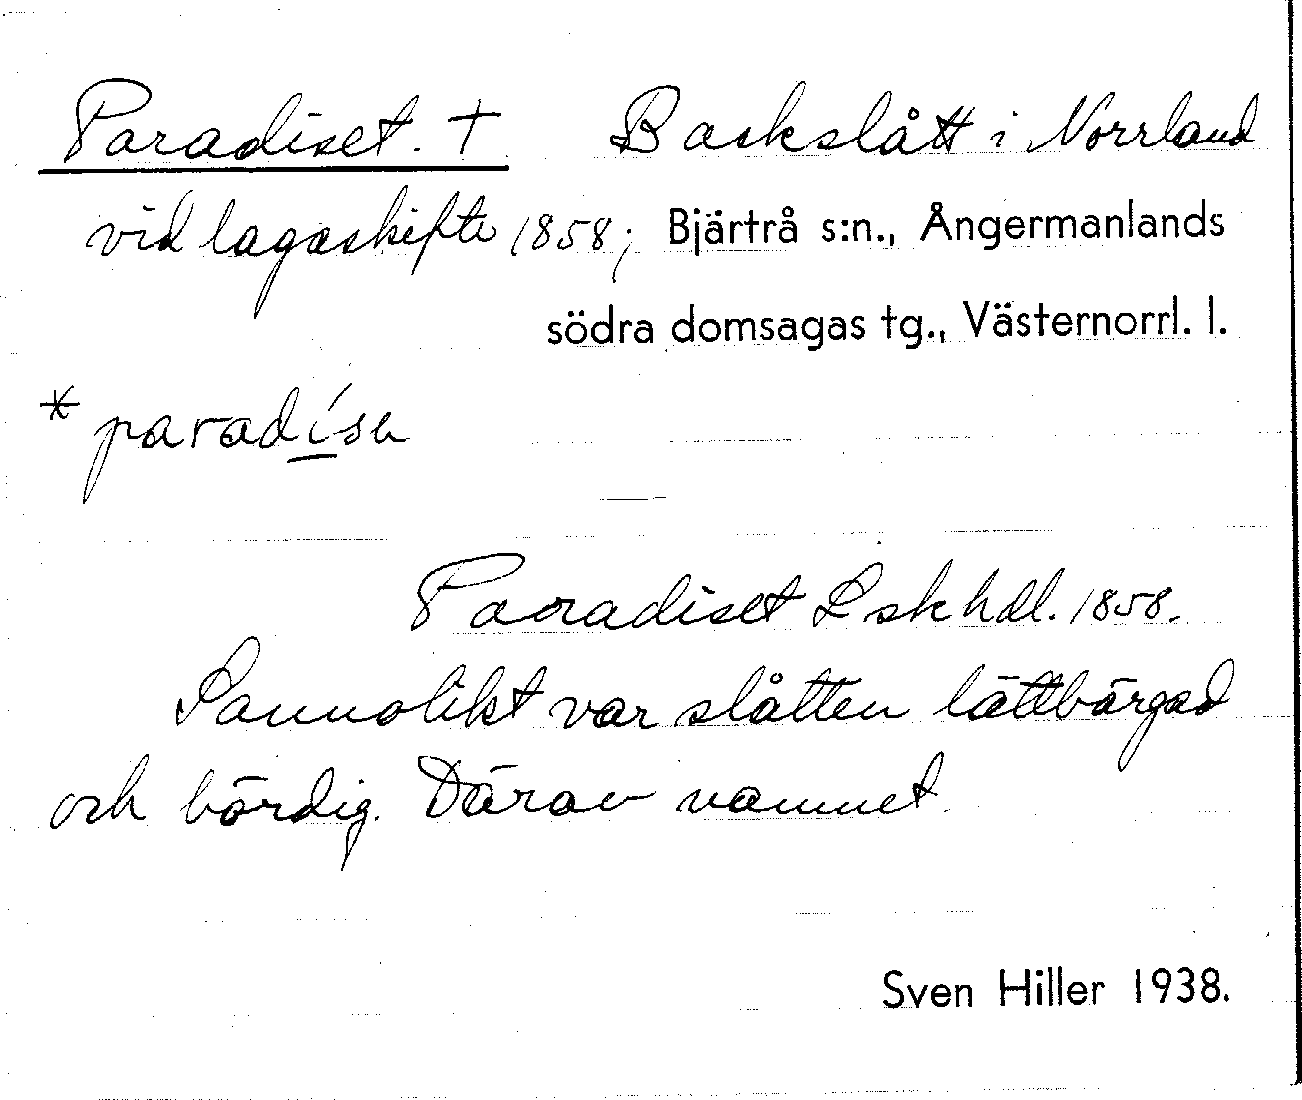 Paradiset. † Backslått i Norrland
vid lagaskifte 1858; Bjärtrå s:n., Ångermanlands
södra domsagas tg., Västernorrl. l.
* paradísə
Paradiset Lskhdl. 1858.
Sannolikt var slåtten lättbärgad
och bördig. Därav namnet
Sven Hiller 1938.